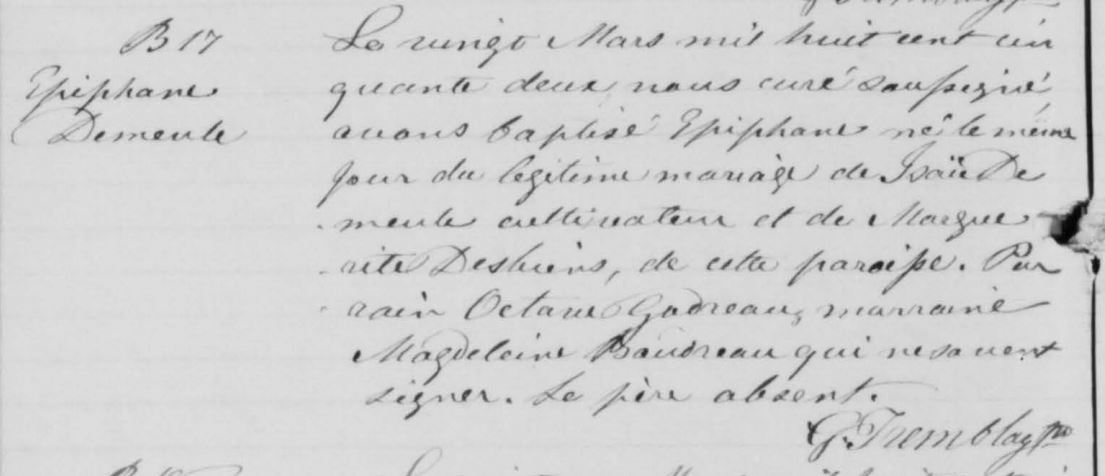 B 17
Epiphane
Demeule
Le vingt Mars mil huit cent cin
quante deux nous curé soussigné
avons baptisé Epiphane né le même
jour du légitime mariage de Isaïe De
meule cultivateur et de Margue
rite Desbiens, de cette paroisse. Par
rain Octave Godreau, marraine
Magdeleine Boudreau qui ne savent
signer. Le père absent.
G. Tremblay Ptre